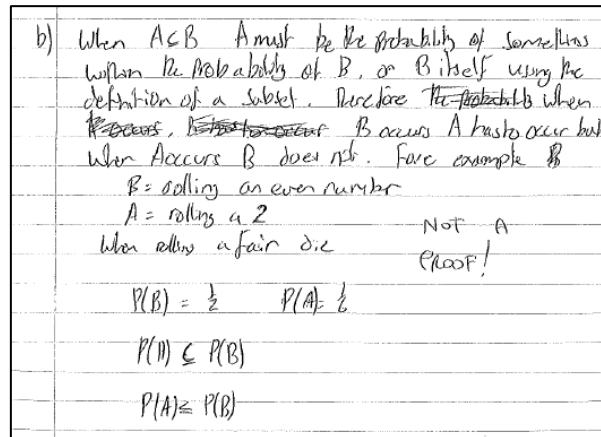 b) When A⊂B A must be the probability of something
within the probability of B, or B itself using the
definition of a subset. Therefore the probability when
B occurs A has to occur but
when A occurs B does not. Fore example
B = rolling an even number
A = rolling a 2
When rolling a fair die
NOT A
PROOF!
P(B) = 1/2 P(A) = 1/6
P(A) ⊆ P(B)
P(A) ≤ P(B)